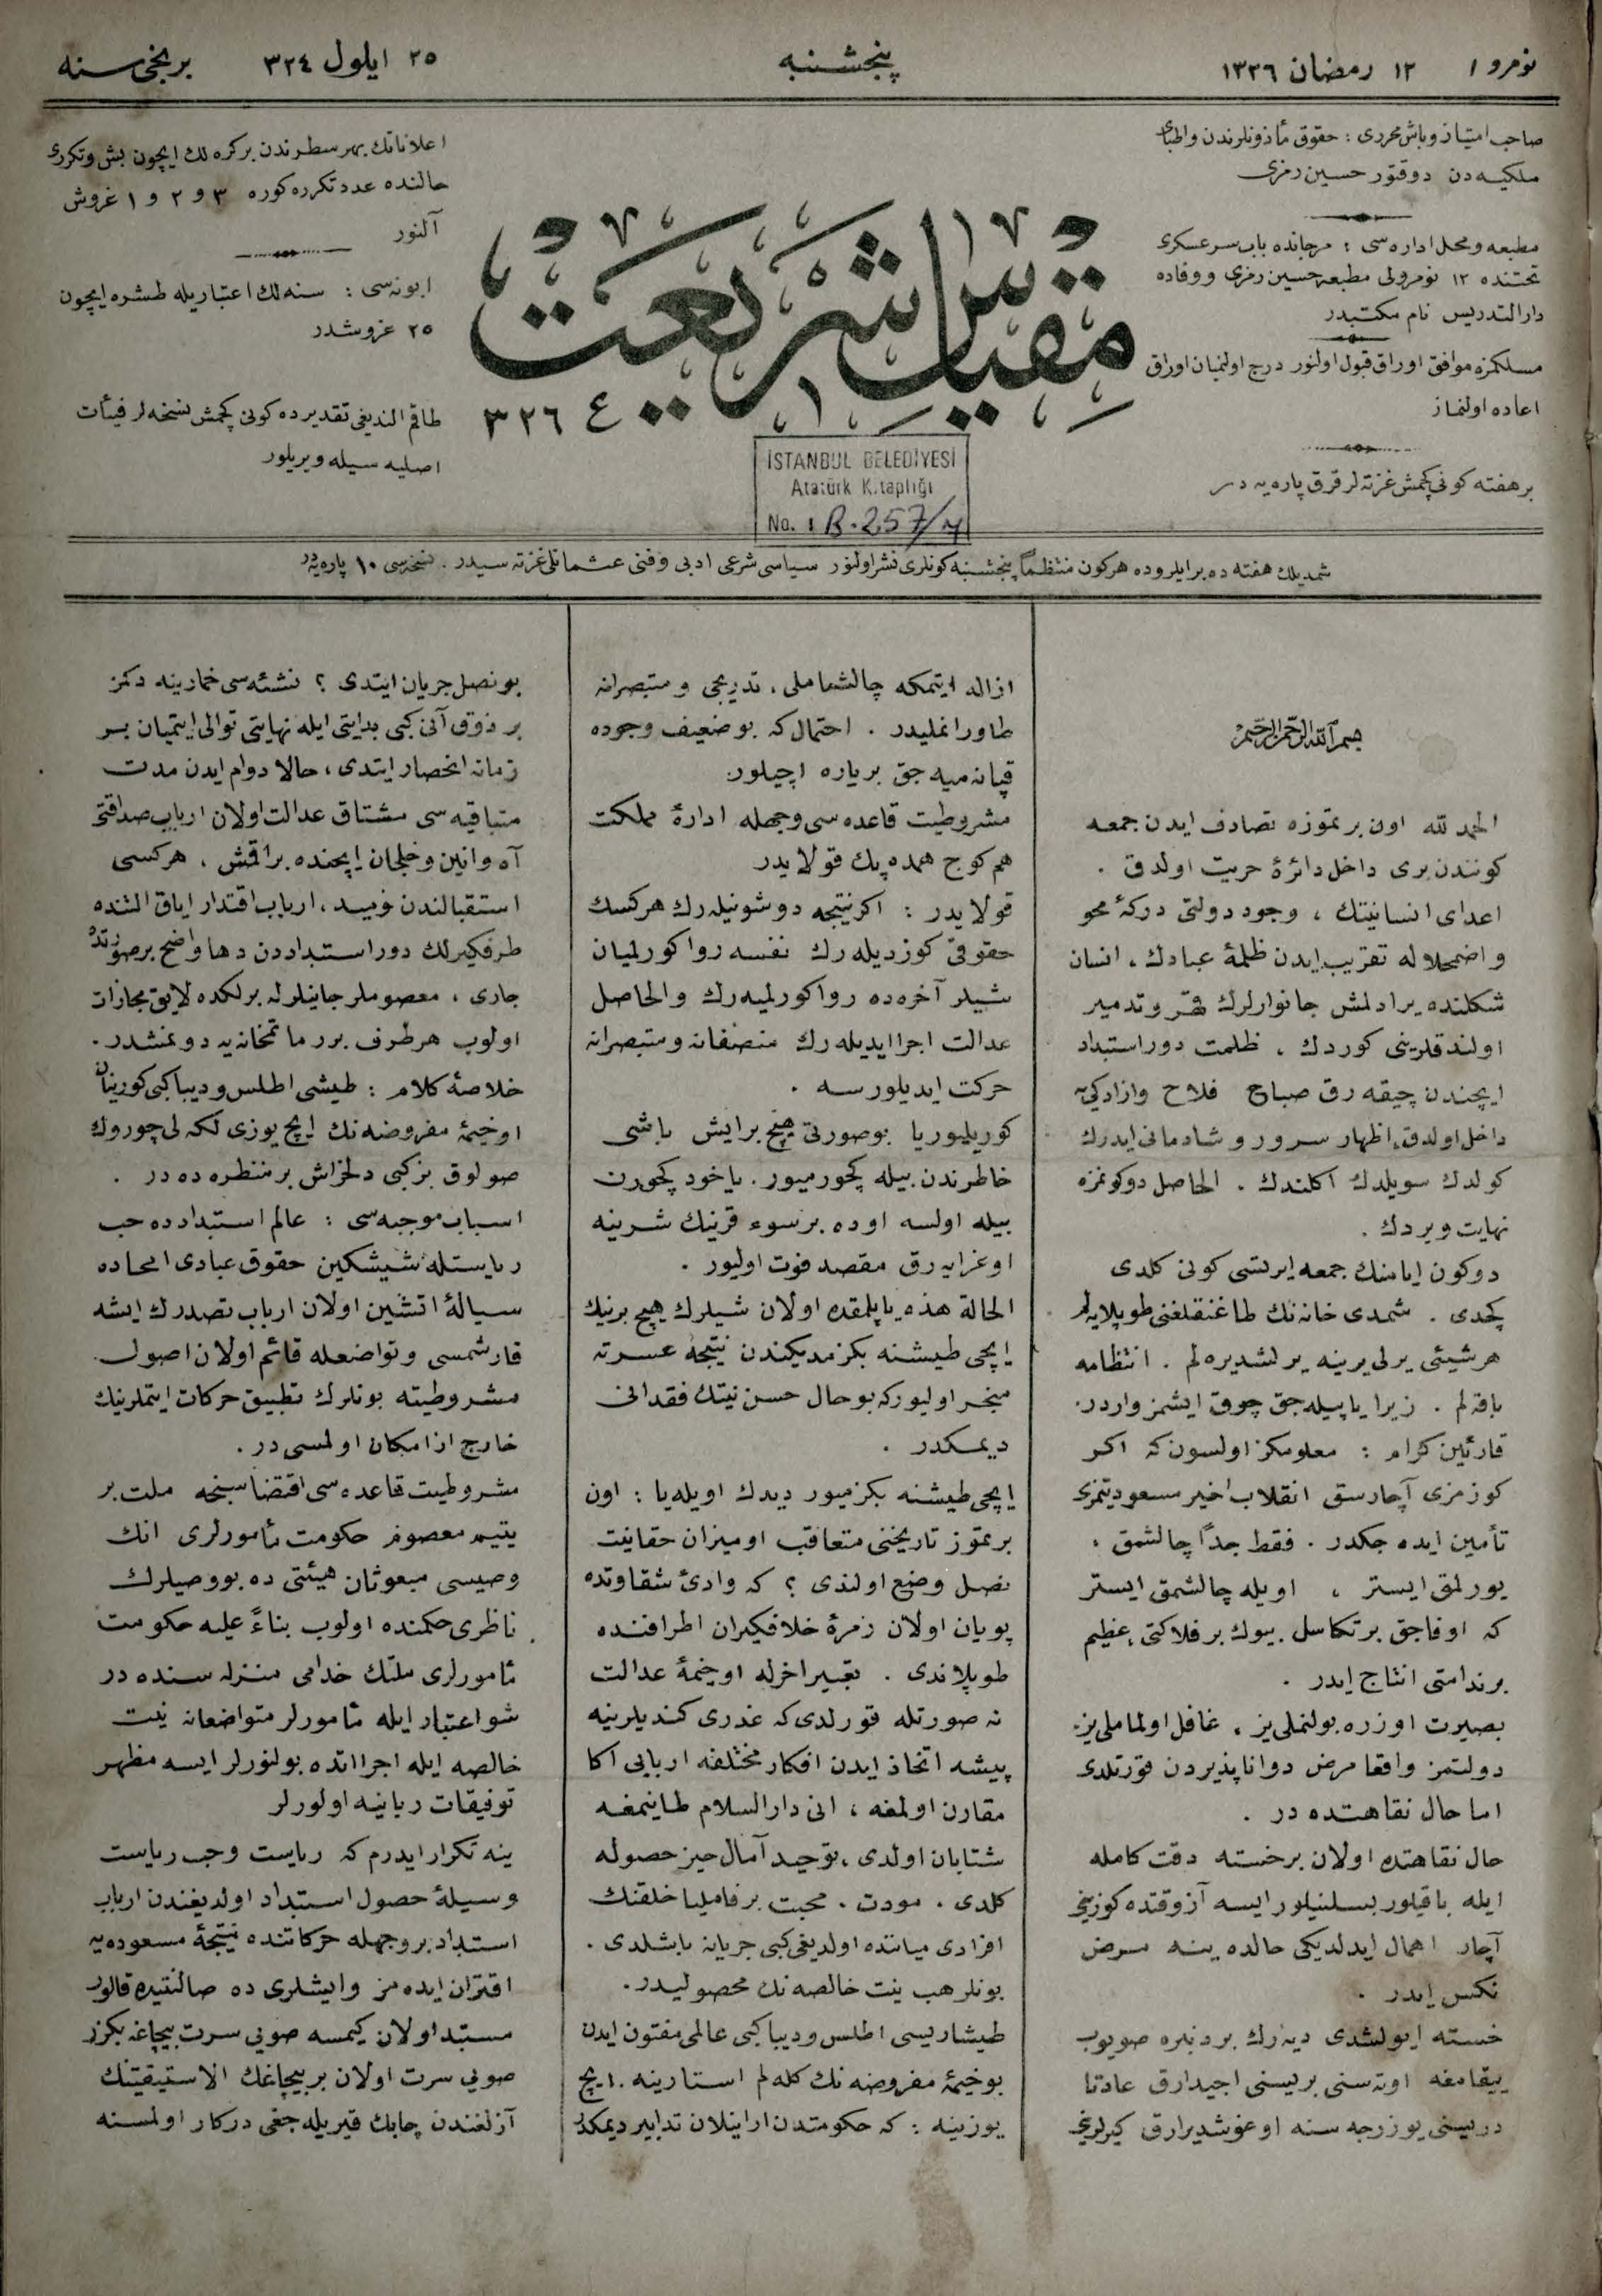 نومرو ١
١٢ رمضان ١٣٢٦
پنجشنبه
٢٥ ایلول ٣٢٤
برنجی سنه
صاحب امتیاز و باش محرری : حقوق مأذونلرندن واطبای
ملکیه دن دوقتور حسین رمزی
مطبعه و محل اداره سی : مرجانده باب سرعسکری
تحتنده ١٢ نومرولی مطبعه حسین رمزی ووفاده
دارالتدریس نام مکتبدر
مسلکمزه موافق اوراق قبول اولنور درج اولنمیان اوراق
اعاده اولنماز
بر هفته کونی کچمش غزته لر قرق پاره یه در
مقیاس شریعت
٣٢٦
اعلاناتك بهر سطرندن بر کره لك ایچون بش و تکرری
حالنده عدد تکرره کوره ٣ و ٢ و ١ غروش
آلنور
ابونه سی : سنه لك اعتباریله طشره ایچون
٢٥ غروشدر
طاقم الندیغی تقدیرده کونی کچمش نسخه لر فیئات
اصلیه سیله ویریلور
İSTANBUL BELEDİYESİ
Atatürk Kitaplığı
No. : B.257/4
شمدیلك هفته ده بر ایلروده هرکون منتظماً پنجشنبه کونلری نشر اولنور سیاسی شرعی ادبی و فنی عثمانلی غزته سیدر . نسخه سی ١٠ پاره یه در
بسم الله الرحمن الرحیم
الحمد لله اون بر تموزه تصادف ایدن جمعه
کونندن بری داخل دائرۀ حریت اولدق .
اعدای انسانیتك ، وجود دولتی درکۀ محو
و اضمحلاله تقریب ایدن ظلمۀ عبادك ، انسان
شکلنده یرادلمش جانوارلرك قهر و تدمیر
اولندقلرینی کوردك ، ظلمت دور استبداد
ایچندن چیقه رق صباح فلاح وازادکی یه
داخل اولدق، اظهار سرور و شادمانی ایدرك
کولدك سویلدك اکلندك . الحاصل دوکونمزه
نهایت ویردك .
دوکون ایامنك جمعه ایرتسی کونی کلدی
کچدی . شمدی خانه نك طاغنقلغنی طوپلایه لم
هر شیئی یرلی یرینه یرلشدیره لم . انتظامه
باقه لم . زیرا یاپیله جق چوق ایشمز واردر.
قارئین کرام : معلومکز اولسون که اکر
کوزمزی آچارسق انقلاب اخیر مسعودیتمزی
تأمین ایده جکدر . فقط جداً چالشمق ،
یورلمق ایستر ، اویله چالشمق ایستر
که اوفاجق بر تکاسل بیوك بر فلاکتی، عظیم
بر ندامتی انتاج ایدر .
بصیرت اوزره بولنملی یز ، غافل اولماملی یز.
دولتمز واقعا مرض دواناپذیردن قورتلدی
اما حال نقاهتده در .
حال نقاهتده اولان بر خسته دقت کامله
ایله باقیلور بسلنیلور ایسه آز وقتده کوزینی
آچار اهمال ایدلدیکی حالده ینه مرض
نکس ایدر .
خسته ایولشدی دیه رك بردنبره صویوب
ییقامغه اوته سنی بریسنی اجیدارق عادتا
دریسنی یوزرجه سنه اوغوشدیرارق کیرلرینی
ازاله ایتمکه چالشماملی ، تدریجی و متبصرانه
طاورانملیدر . احتمال که بو ضعیف وجوده
قپانه میه جق بر یاره اچیلور.
مشروطیت قاعده سی وجهله ادارۀ مملکت
هم کوج همده پك قولایدر
قولایدر : اکر نتیجه دوشونیله رك هرکسك
حقوقی کوزدیله رك نفسه روا کورلمیان
شیلر آخره ده روا کورلمیه رك والحاصل
عدالت اجرا ایدیله رك منصفانه و متبصرانه
حرکت ایدیلورسه .
کوریلیوریا بو صورتی هیچ بر ایش باشی
خاطرندن بیله کچورمیور. یاخود کچورن
بیله اولسه اوده بر سوء قرینك شرینه
اوغرایه رق مقصد فوت اولیور .
الحالة هذه یاپلمقده اولان شیلرك هیچ برینك
ایچی طیشنه بکزمدیکندن نتیجۀ عسرته
منجر اولیورکه بو حال حسن نیتك فقدانی
دیمکدر .
ایچی طیشنه بکزمیور دیدك اویله یا : اون
بر تموز تاریخنی متعاقب او میزان حقانیت
نصل وضع اولندی ؟ که وادئ شقاوتده
پویان اولان زمرۀ خلافکیران اطرافنده
طوپلاندی . تعبیر اخرله او خیمۀ عدالت
نه صورتله قورلدی که غدری کندیلرینه
پیشه اتخاذ ایدن افکار مختلفه اربابی اکا
مقارن اولمغه ، انی دارالسلام طانیمغه
شتابان اولدی ، توحید آمال حیز حصوله
کلدی . مودت . محبت بر فامیلیا خلقنك
افرادی میاننده اولدیغی کبی جریانه باشلدی .
بونلر هب نیت خالصه نك محصولیدر.
طیشاریسی اطلس و دیبا کبی عالمی مفتون ایدن
بو خیمۀ مفروضه نك کله لم استارینه . ایچ
یوزینه : که حکومتدن ارانیلان تدابیر دیمکدر
بو نصل جریان ایتدی ؟ نشئه سی خمارینه دکمز
بر ذوق آنی کبی بدایتی ایله نهایتی توالی ایتمیان بر
زمانه انحصار ایتدی ، حالا دوام ایدن مدت
متباقیه سی مشتاق عدالت اولان ارباب صداقتی
آه و انین و خلجان ایچنده براقمش . هرکسی
استقبالندن نومید ، ارباب اقتدار ایاق التنده
طرفکیرلك دور استبداددن دها واضح بر صورتده
جاری ، معصوملر جانیلرله برلکده لایق مجازات
اولوب هر طرف برر ماتمخانه یه دونمشدر.
خلاصۀ کلام : طیشی اطلس و دیبا کبی کورینان
او خیمۀ مفروضه نك ایچ یوزی لکه لی چوروك
صولوق بز کبی دلخراش بر منظره ده در .
اسباب موجبه سی : عالم استبدادده حب
ریاستله شیشکین حقوق عبادی امحاده
سیالۀ اتشین اولان ارباب تصدرك ایشه
قارشمسی و تواضعله قائم اولان اصول
مشروطیته بونلرك تطبیق حرکات ایتملرینك
خارج از امکان اولمسی در .
مشروطیت قاعده سی اقتضاسنجه ملت بر
یتیم معصوم حکومت مأمورلری انك
وصیسی مبعوثان هیئتی ده بو وصیلرك
ناظری حکمنده اولوب بناءً علیه حکومت
مأمورلری ملتك خدامی منزله سنده در
شو اعتبار ایله مأمورلر متواضعانه نیت
خالصه ایله اجراآتده بولنورلر ایسه مظهر
توفیقات ربانیه اولورلر
ینه تکرار ایدرم که ریاست وحب ریاست
وسیلۀ حصول استبداد اولدیغندن ارباب
استبداد بر وجهله حرکاتنده نتیجۀ مسعوده یه
اقتران ایده مز و ایشلری ده صالنتیده قالور
مستبد اولان کیمسه صویی سرت بیچاغه بکزر
صویی سرت اولان بر بیچاغك الاستیقیتنك
آزلغندن چابك قیریله جغی درکار اولسنه